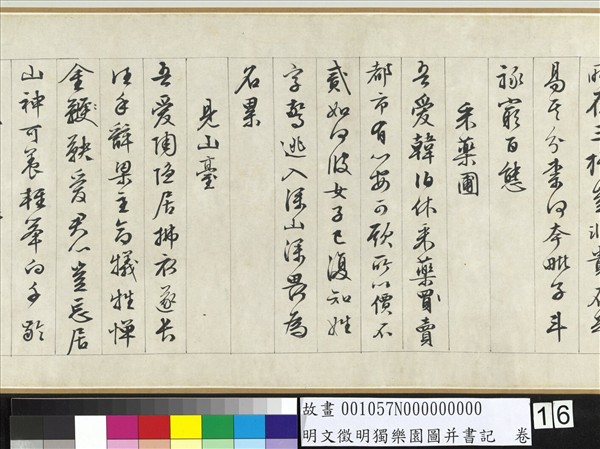 所在三公豈非貴不足
易其介奈何夸毗子斗
祿窮百態
采藥圃
吾愛韓伯休采藥罷賣
都市有心安可欺所以價不
貳如何彼女子已復知姓
字驚逃入深山深畏為
名累
見山臺
吾愛陶隱居拂衣遂長
往手辭梁主命犧牲憚
金鞭鞅愛君心豈忘居
山神可養輕舉向千齡
故畫 001057N000000000
明文徵明獨樂園圖并書記 卷
16